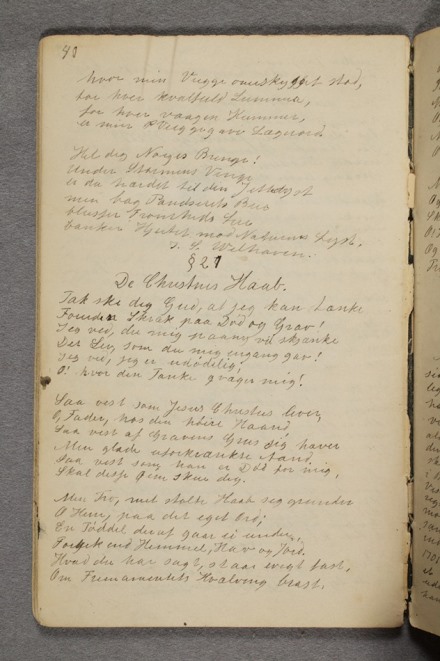 40
hvor min Vugge omskygget stod,
for hver kvalfuld Lummen,
for hver vaagen Kummer,
er min Vuggegave Lægerod.
Hil dig Norges Bringe!
Under Stormens Vinge
er du hærdet til din
men bag Pandserets
blusser
banker Hjertet mod Naturens Lyst.
Welhaven.
§ 21
De Christnes Haab.
Tak ske dig Gud, at jeg kan tænke
Foruden Skræk paa Død og Grav!
Jeg ved, du mig paany vil skjænke
Det Liv, som du mig engang gav!
Jeg ved, jeg er udødelig!
O! hvor den Tanke qvæger mig!
Saa vest som Jesus Christus lever,
O, Fader, hos din høire Haand
Saa vest af Gravens Grus sig hæver
Min glade uforkrænkte Aand,
Saa vest som han er Død for mig,
Skal disse Øine skue dig.
Min Tro, med stolte Haab sig grunder
O Herre, paa dit eget Ord;
En Tøddel deraf gaar ei under,
Forgik end Himmel, Hav og Jord.
Hvad du har sagt, staar evigt fast,
Om Firmamentets Hvælving brast.